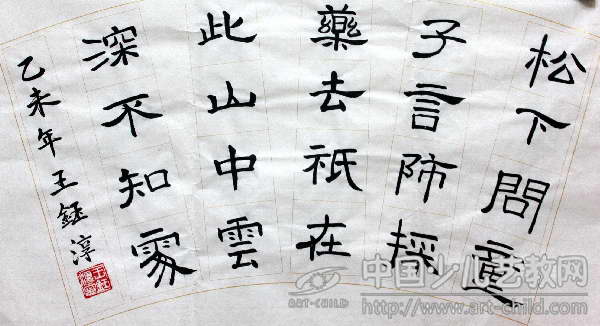 松下問童
子言師採
藥去祇在
此山中雲
深不知處
乙未年王鈺淳
中国少儿艺教网
ART-CHILD
http://www.art-child.com